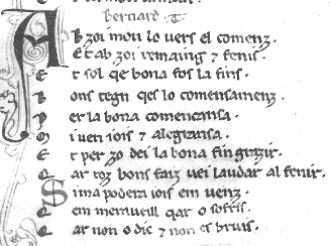 Bernard. T.
Ab zoi mou lo vers el comenz.
Et ab zoi remaing ⁊ fenis.
Et sol qe bona fos la fins.
Bons tegn qes lo comensamenz.
Per la bona comenzansa.
Mi ven iois ⁊ alegransa.
Et per zo dei la bona fin grazir.
Car toz bons faiz vei laudar al fenir.
Si ma podera iois em venz.
Qem meraueill qar o sofris.
Car non o dic ⁊ non es bruis.